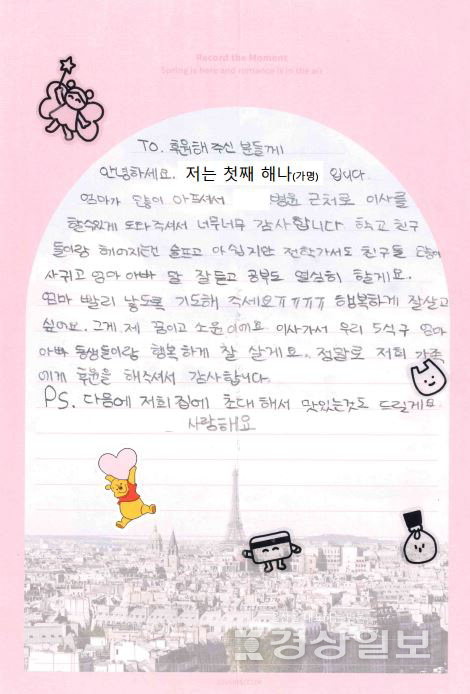 Record the Moment
Spring is here and romance is in the air
To. 후원해 주신 분들께
안녕하세요. 저는 첫째 해나(가명) 입니다.
엄마가 많이 아프셔서 병원 근처로 이사를
할수있게 도와주셔서 너무너무 감사합니다. 학교 친구
들이랑 헤어지는건 슬프고 아쉽지만 전학가서도 친구들 많이
사귀고 엄마 아빠 말 잘듣고 공부도 열심히 할게요.
엄마 빨리 낳도록 기도해 주세요ㅠㅠㅠㅠ 행복하게 잘살고
싶어요. 그게 제 꿈이고 소원이에요 이사가서 우리 5식구 엄마
아빠 동생들이랑 행복하게 잘 살게요. 정말로 저희 가족
에게 후원을 해주셔서 감사합니다.
Ps. 다음에 저희집에 초대해서 맛있는것도 드릴게요
사랑해요
경상일보